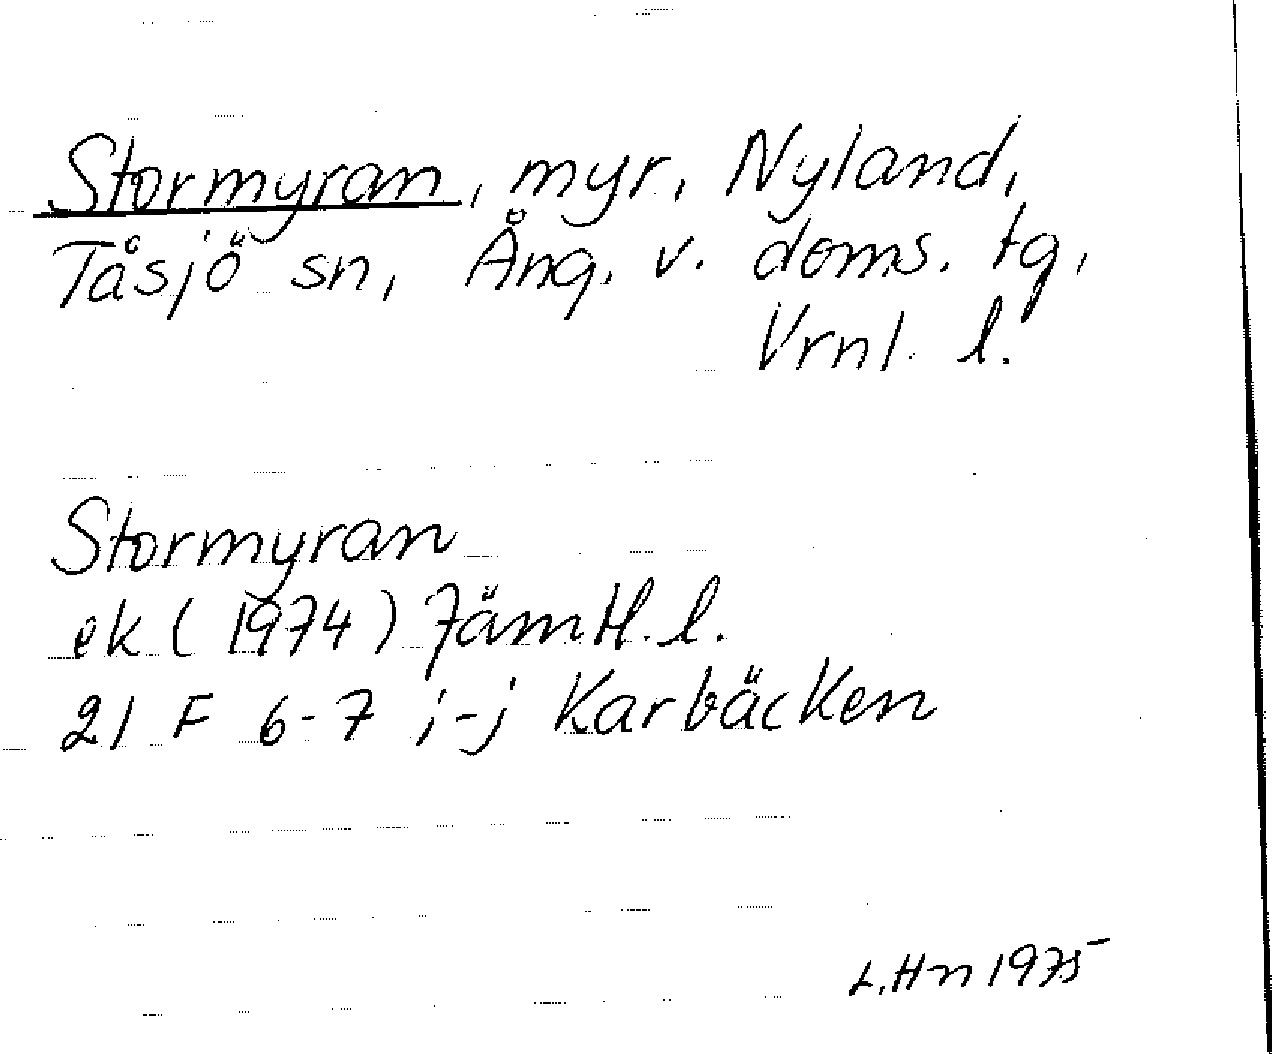 Stormyran, myr, Nyland,
Tåsjö sn, Ång. v. doms. tg,
Vrnl. l.
Stormyran
ek (1974) Jämtl. l.
21 F 6-7 i-j Karbäcken
L.Hn 1975